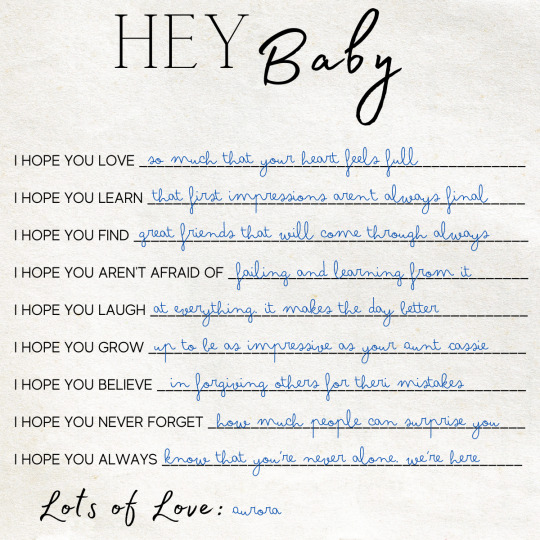 HEY Baby
I HOPE YOU LOVE so much that your heart feels full
I HOPE YOU LEARN that first impressions arent always final
I HOPE YOU FIND great friends that will come through always
I HOPE YOU AREN'T AFRAID OF failing and learning from it
I HOPE YOU LAUGH at everything. it makes the day better
I HOPE YOU GROW up to be as impressive as your aunt cassie
I HOPE YOU BELIEVE in forgiving others for theri mistakes
I HOPE YOU NEVER FORGET how much people can surprise you
I HOPE YOU ALWAYS know that you're never alone. we're here
Lots of Love: aurora